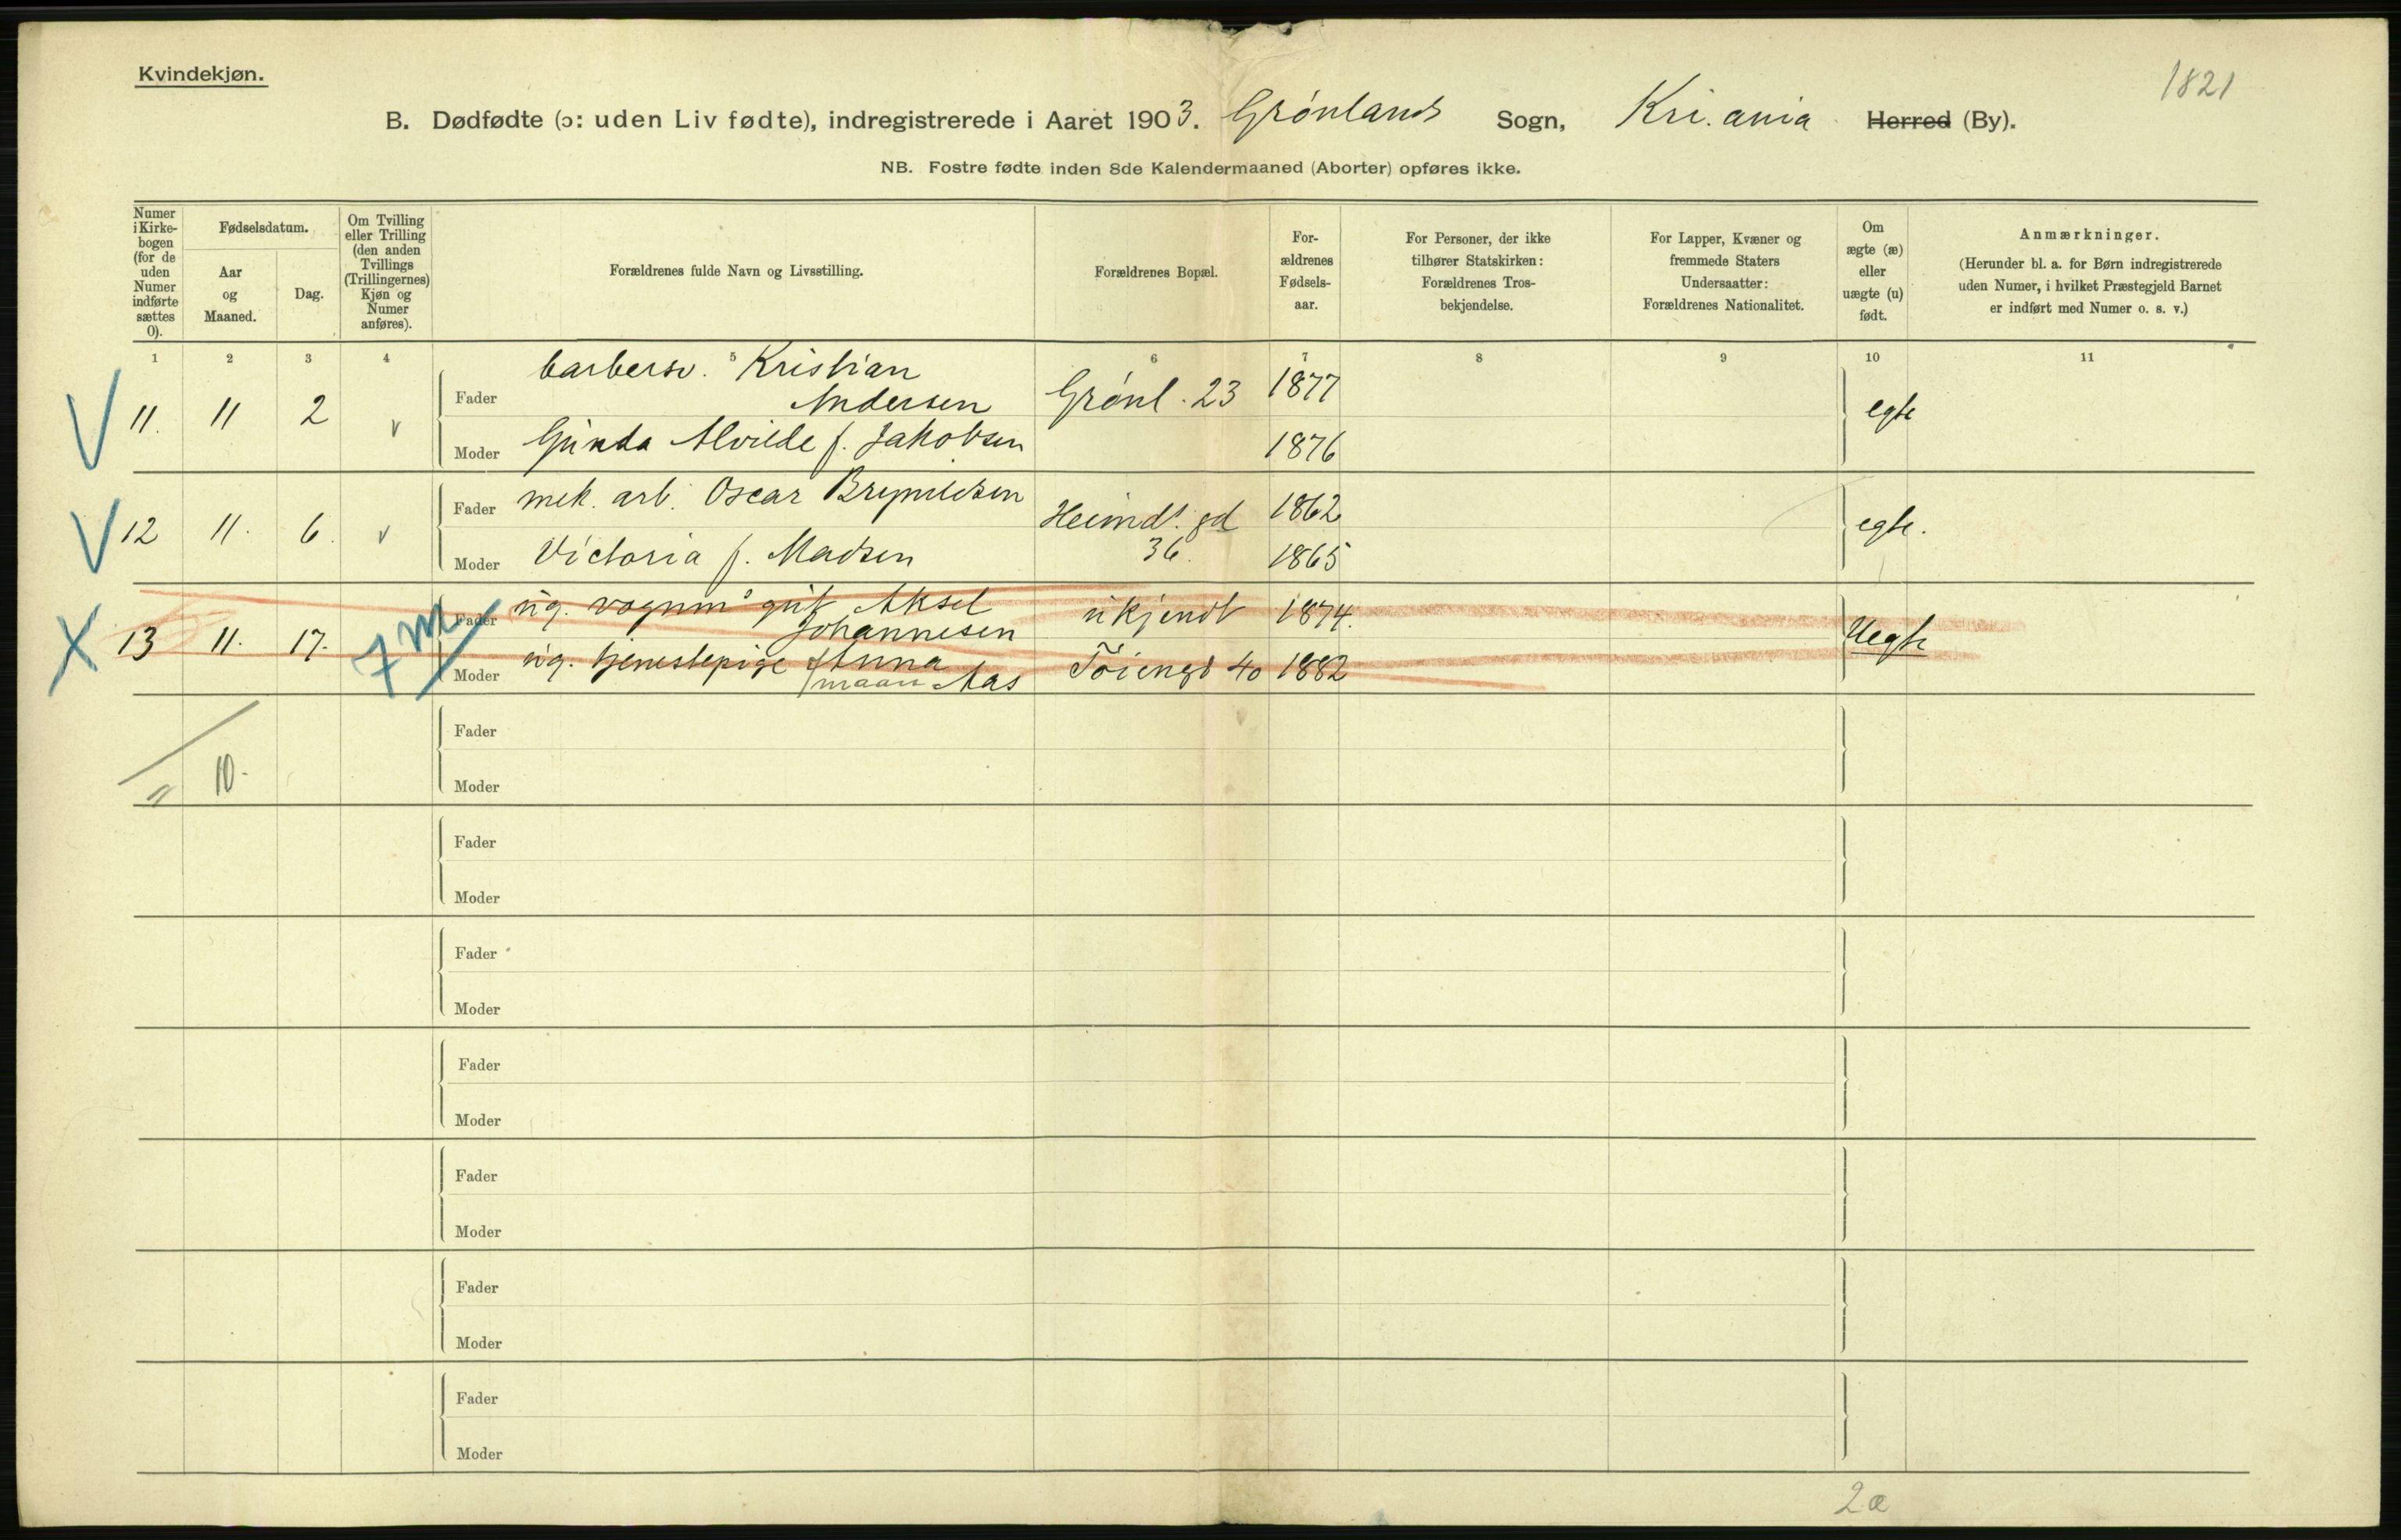 Kvindekjøn.
1821
B. Dødfødte (ɔ: uden Liv fødte), indregistrerede i Aaret 1903. Grønlands Sogn, Kri.ania Herred (By).
NB. Fostre fødte inden 8de Kalendermaaned (Aborter) opføres ikke.
Numer i Kirke-bogen (for de uden Numer indførte sættes 0).
Fødselsdatum.
Aar og Maaned.
Dag.
Om Tvilling eller Trilling (den anden Tvillings (Trillingernes) Kjøn og Numer anføres).
Forældrenes fulde Navn og Livsstilling.
Forældrenes Bopæl.
For-ældrenes Fødsels-aar.
For Personer, der ikke tilhører Statskirken: Forældrenes Tros-bekjendelse.
For Lapper, Kvæner og fremmede Staters Undersaatter: Forældrenes Nationalitet.
Om ægte (æ) eller uægte (u) født.
Anmærkninger.
(Herunder bl. a. for Børn indregistrerede uden Numer, i hvilket Præstegjeld Barnet er indført med Numer o. s. v.)
1 2 3 4 5 6 7 8 9 10 11
V 11. 11 2 v Fader barbersv. Kristian Andersen Grønl. 23 1877 egte
Moder Gunda Alvilde f. Jakobsen 1876
V 12 11. 6. v Fader mek. arb. Oscar Brynildsen Heimdl. gd 36. 1862 egte.
Moder Victoria f. Madsen 1865
X 13 11. 17. 7 m Fader ug. vognm. gut Aksel Johannesen ukjendt 1874. Uegte
Moder ug. tjenestepige Anna Aas Tøiengd 40 1882
10.
Fader
Moder
Fader
Moder
Fader
Moder
Fader
Moder
Fader
Moder
Fader
Moder
Fader
Moder
2 æ